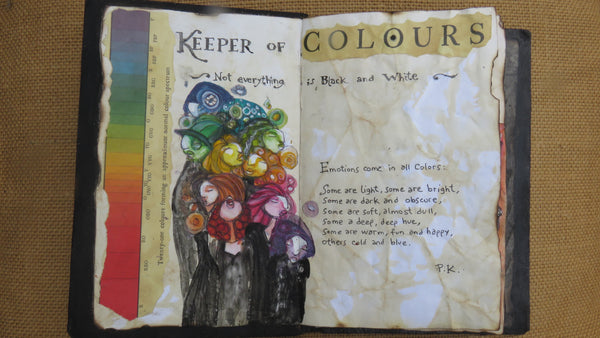 KEEPER OF COLOURS
Not everything is Black and White
Twenty-one colours forming an approximate normal colour spectrum
Emotions come in all Colors:
Some are light, some are bright,
Some are dark and obscure,
Some are soft, almost dull,
Some a deep, deep hue,
Some are warm, fun and happy,
others cold and blue.
P.K.